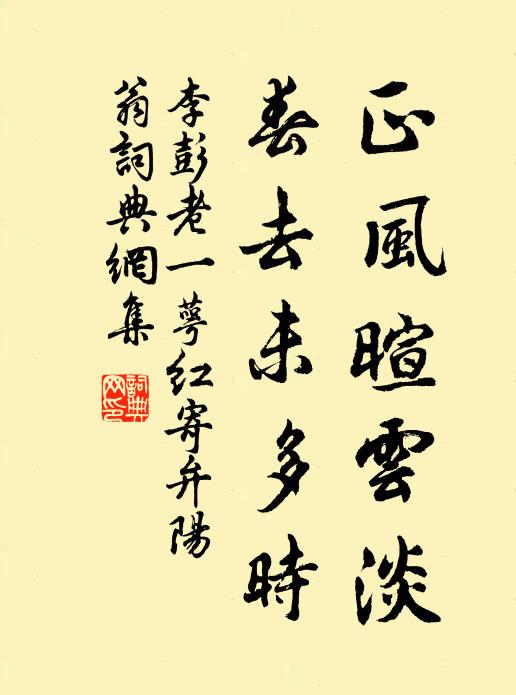 正風暄雲淡
春去未多時
李彭老一萼紅寄弁陽
翁詞典網集
詞典
网印